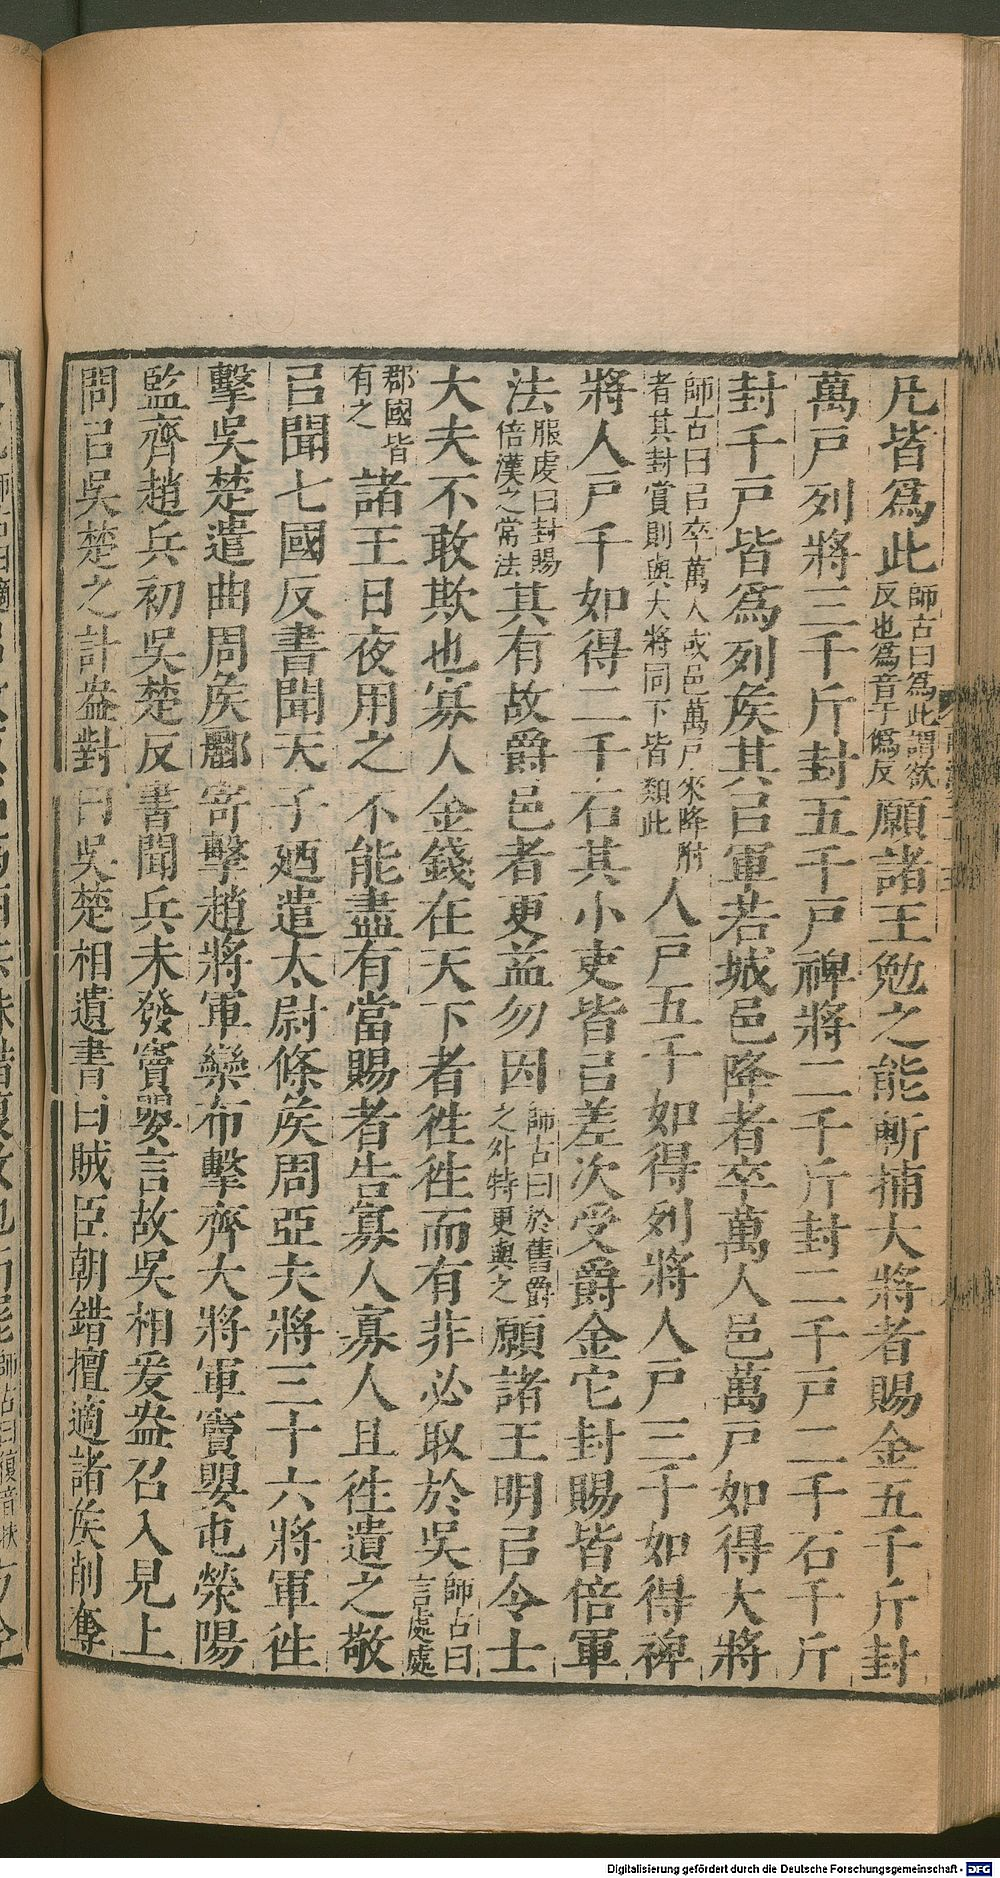 凡皆爲此師古曰爲此謂欲反也爲音于僞反願諸王勉之能斬捕大將者賜金五千斤封
萬戸列將三千斤封五千戸裨將二千斤封二千戸二千石千斤
封千戸皆爲列矦其㠯軍若城邑降者卒萬人邑萬戸如得大將
師古曰㠯卒萬人或邑萬戸來降附者其封賞則與大將同下皆類此人戸五千如得列將人戸三千如得裨
將人戸千如得二千石其小吏皆㠯差次受爵金它封賜皆倍軍
法服虔曰封賜倍漢之常法其有故爵邑者更益勿因師古曰於舊爵之外特更與之願諸王明㠯令士
大夫不敢欺也寡人金錢在天下者徃徃而有非必取於吳師古曰言處處
郡國皆有之諸王日夜用之不能盡有當賜者告寡人寡人且徃遺之敬
㠯聞七國反書聞天子廼遣太尉條矦周亞夫將三十六將軍徃
擊吳楚遣曲周矦酈寄擊趙將軍欒布擊齊大將軍竇嬰屯滎陽
監齊趙兵初吳楚反書聞兵未發竇嬰言故吳相爰盎召入見上
問㠯吳楚之計盎對曰吳楚相遺書曰賊臣朝錯擅適諸矦削奪
Digitalisierung gefördert durch die Deutsche Forschungsgemeinschaft - DFG